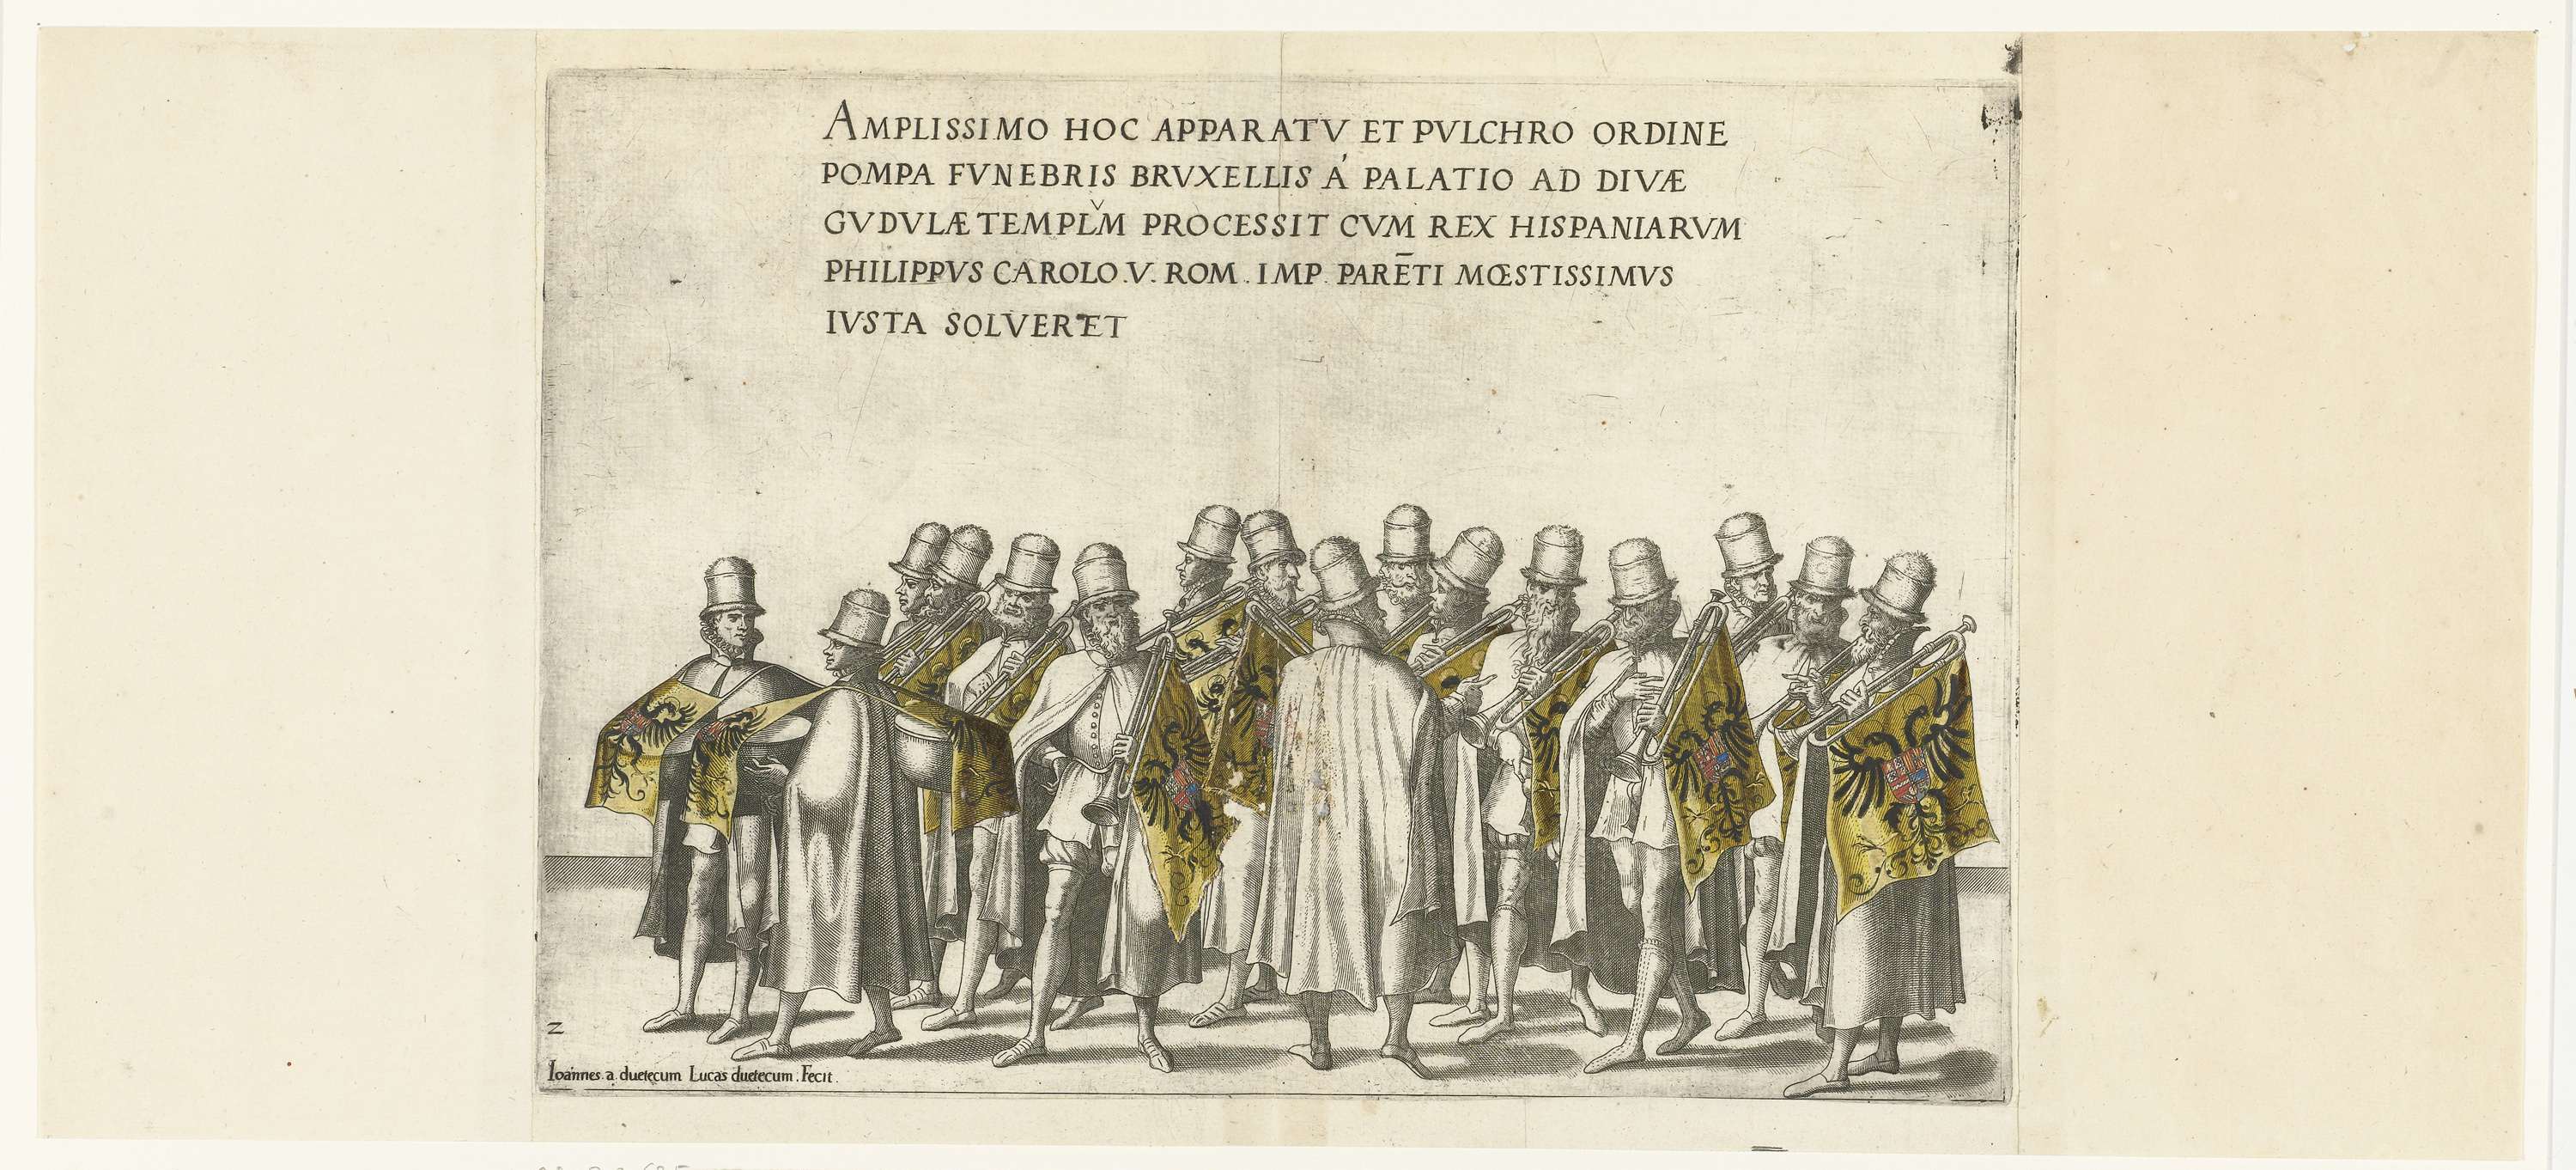 AMPLISSIMO HOC APPARATV ET PVLCHRO ORDINE
POMPA FVNEBRIS BRVXELLIS Á PALATIO AD DIVÆ
GVDVLÆ TEMPLV̌M PROCESSIT CVM REX HISPANIARVM
PHILIPPVS CAROLO.V. ROM. IMP. PARĒTI MŒSTISSIMVS
IVSTA SOLVERET
2
Ioannes a duetecum Lucas duetecum. Fecit.